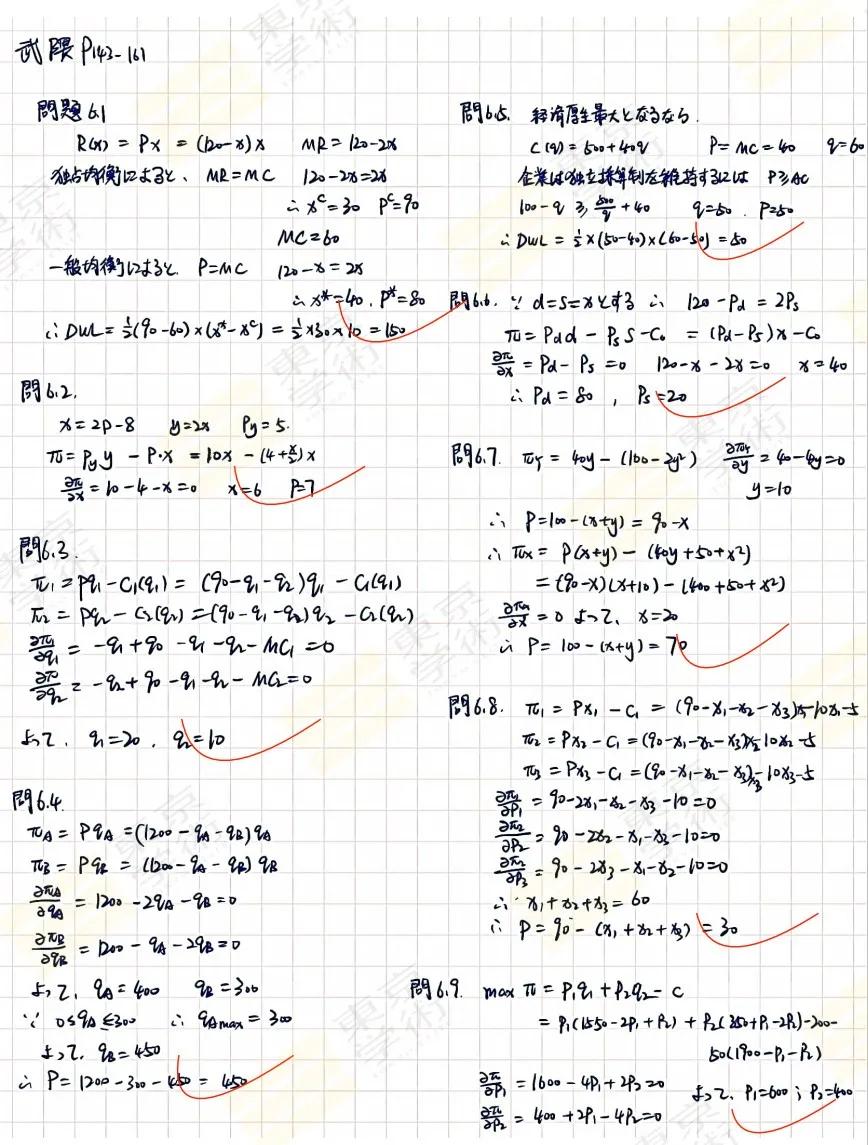 武隈 P143-161
問題 6.1
R(x) = Px = (120-x)x MR = 120-2x
独占均衡によると、MR=MC 120-2x=2x
∴ x^c=30 p^c=90
MC=60
一般均衡によると、P=MC 120-x=2x
∴ x*=40, p*=80
∴ DWL = 1/2(90-60)×(x*-x^c) = 1/2×30×10 = 150
問6.2.
x=2p-8 y=2x Py=5.
π = Py y - P·x = 10x - (4+x/2)x
∂π/∂x = 10-4-x=0 x=6 P=7
問6.3.
π1 = Pq1 - C1(q1) = (90-q1-q2)q1 - C1(q1)
π2 = Pq2 - C2(q2) = (90-q1-q2)q2 - C2(q2)
∂π1/∂q1 = -q1+90-q1-q2-MC1=0
∂π/∂q2 = -q2+90-q1-q2-MC2=0
よって、q1=20, q2=10
問6.4.
πA = PqA = (1200-qA-qB)qA
πB = PqB = (1200-qA-qB)qB
∂πA/∂qA = 1200-2qA-qB=0
∂πB/∂qB = 1200-qA-2qB=0
よって、qA=400 qB=300
∵ 0≤qA≤300 ∴ qAmax=300
よって、qB=450
∴ P=1200-300-450=450
問6.5. 経済厚生最大となるなら.
C(q)=500+40q P=MC=40 q=60
企業は独立採算制を維持するには P≥AC
100-q ≥ 500/q + 40 q=50. P=50
∴ DWL = 1/2×(50-40)×(60-50) = 50
問6.6. ∵ d=s=xとする ∴ 120-Pd=2Ps
π = Pd d - Ps S - C0 = (Pd-Ps)x - C0
∂π/∂x = Pd-Ps=0 120-x-2x=0 x=40
∴ Pd=80, Ps=20
問6.7. πY = 40y-(100-2y²) ∂πY/∂y = 40-4y=0
y=10
∴ P=100-(x+y)=90-x
∴ πx = P(x+y)-(40y+50+x²)
=(90-x)(x+10)-(400+50+x²)
∂πx/∂x=0 よって、x=20
∴ P=100-(x+y)=70
問6.8. π1 = Px1-C1 = (90-x1-x2-x3)x1-10x1-5
π2 = Px2-C1 = (90-x1-x2-x3)x2-10x2-5
π3 = Px3-C1 = (90-x1-x2-x3)x3-10x3-5
∂π1/∂P1 = 90-2x1-x2-x3-10=0
∂π2/∂P2 = 90-2x2-x1-x3-10=0
∂π2/∂P3 = 90-2x3-x1-x2-10=0
∴ x1+x2+x3=60
∴ P=90-(x1+x2+x3)=30
問6.9. max π = P1q1+P2q2-C
= P1(1550-2P1+P2)+P2(350+P1-2P2)-200-
50(1900-P1-P2)
∂π/∂P1 = 1600-4P1+2P2=0 よって、P1=600; P2=400
∂π/∂P2 = 400+2P1-4P2=0
東京学術